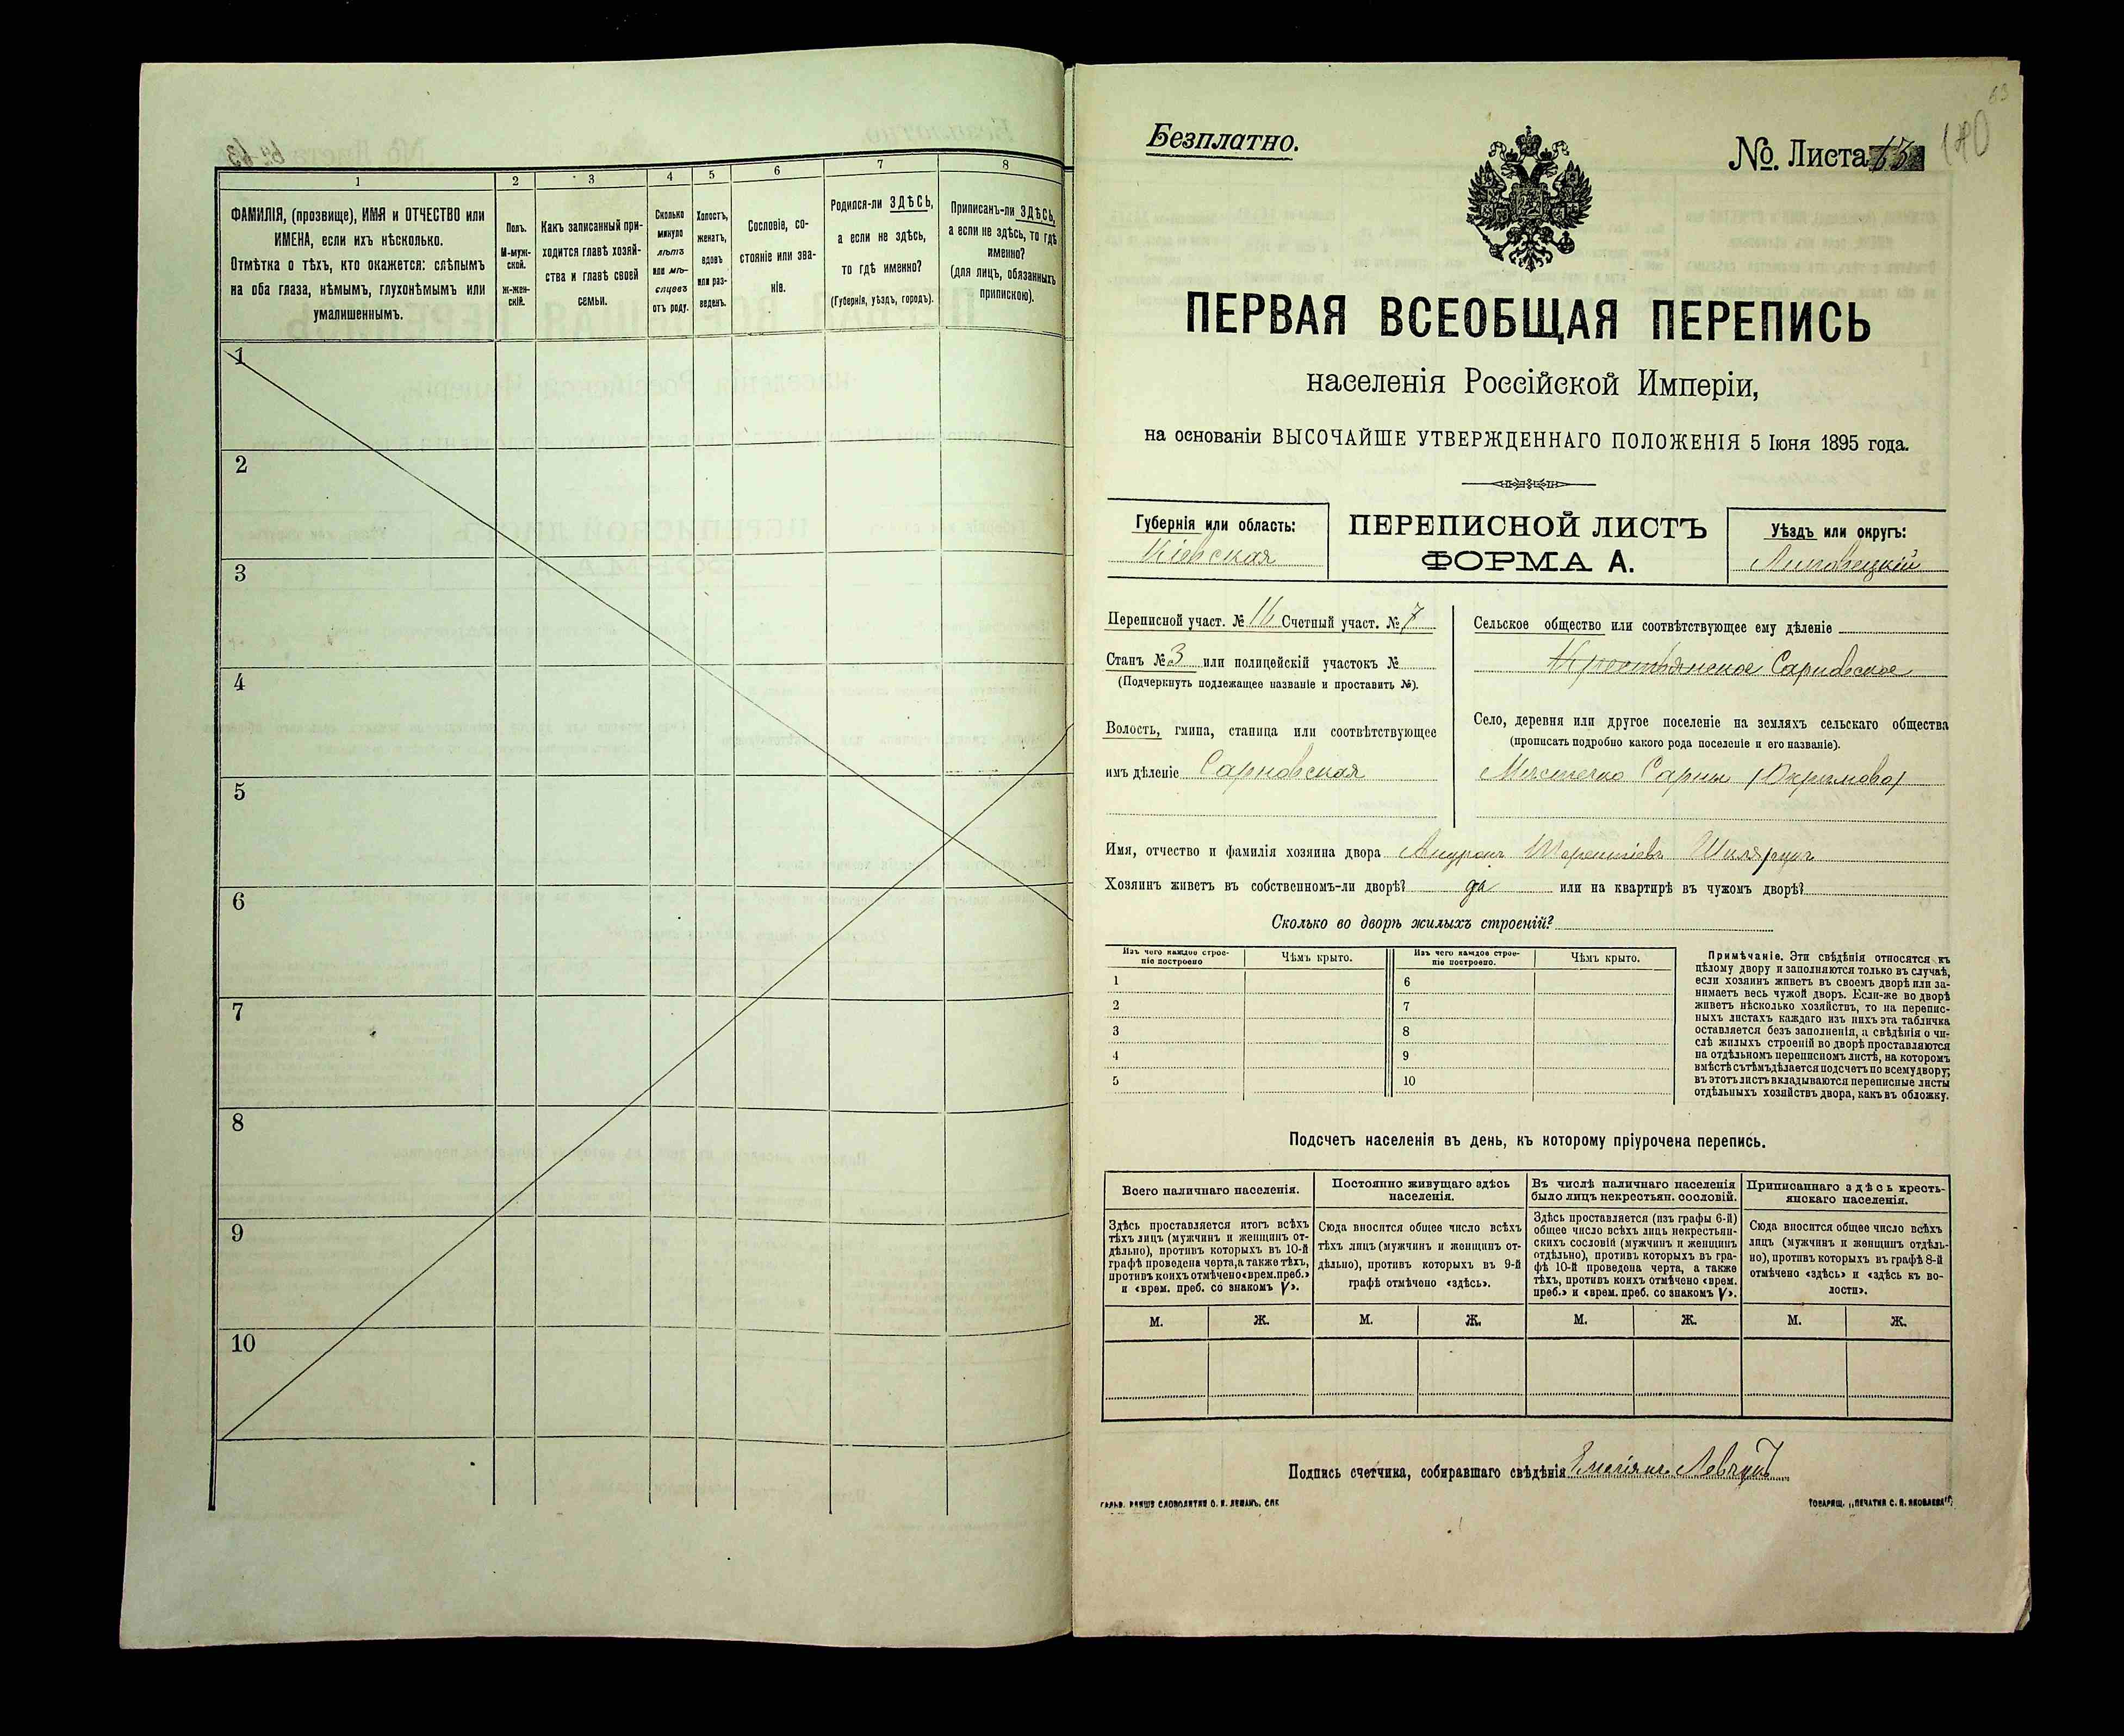 1
2
3
4
5
6
7
8
ФАМИЛІЯ, (прозвище), ИМЯ и ОТЧЕСТВО или
ИМЕНА, если ихъ нѣсколько.
Отмѣтка о тѣхъ, кто окажется: слѣпымъ
на оба глаза, нѣмымъ, глухонѣмымъ или
умалишеннымъ.
Полъ.
М-муж-
ской.
Ж-жен-
скій.
Какъ записанный при-
ходится главѣ хозяй-
ства и главѣ своей
семьи.
Сколько
минуло
лѣтъ
или мѣ-
сяцевъ
отъ роду.
Холостъ,
женатъ,
вдовъ
или раз-
веденъ.
Сословіе, со-
стояніе или зва-
ніе.
Родился-ли ЗДѢСЬ,
а если не здѣсь,
то гдѣ именно?
(Губернія, уѣздъ, городъ).
Приписанъ-ли ЗДѢСЬ,
а если не здѣсь, то гдѣ
именно?
(для лицъ, обязанныхъ
припискою).
1
2
3
4
5
6
7
8
9
10
63
Безплатно.
№. Листа 63
180
ПЕРВАЯ ВСЕОБЩАЯ ПЕРЕПИСЬ
населенія Россійской Имперіи,
на основаніи ВЫСОЧАЙШЕ УТВЕРЖДЕННАГО ПОЛОЖЕНІЯ 5 Іюня 1895 года.
Губернія или область:
Кіевская
ПЕРЕПИСНОЙ ЛИСТЪ
ФОРМА А.
Уѣздъ или округъ:
Липовецкій
Переписной участ. № 16 Счетный участ. № 7
Станъ № 3 или полицейскій участокъ №
(Подчеркнуть подлежащее названіе и проставить №).
Волость, гмина, станица или соотвѣтствующее
имъ дѣленіе Сарновская
Сельское общество или соотвѣтствующее ему дѣленіе
Крестьянское Сарновское
Село, деревня или другое поселеніе на земляхъ сельскаго общества
(прописать подробно какого рода поселеніе и его названіе).
Мѣстечко Сарны
Имя, отчество и фамилія хозяина двора
Хозяинъ живетъ въ собственномъ-ли дворѣ? да или на квартирѣ въ чужомъ дворѣ?
Сколько во дворѣ жилыхъ строеній?
Изъ чего каждое строе-
ніе построено
Чѣмъ крыто.
Изъ чего каждое строе-
ніе построено.
Чѣмъ крыто.
1
2
3
4
5
6
7
8
9
10
Примѣчаніе. Эти свѣдѣнія относятся къ
цѣлому двору и заполняются только въ случаѣ,
если хозяинъ живетъ въ своемъ дворѣ или за-
нимаетъ весь чужой дворъ. Если-же во дворѣ
живетъ нѣсколько хозяйствъ, то на перепис-
ныхъ листахъ каждаго изъ нихъ эта табличка
оставляется безъ заполненія, а свѣдѣнія о чи-
слѣ жилыхъ строеній во дворѣ проставляются
на отдѣльномъ переписномъ листѣ, на которомъ
вмѣстѣ съ тѣмъ дѣлается подсчетъ по всему двору;
въ этотъ листъ вкладываются переписные листы
отдѣльныхъ хозяйствъ двора, какъ въ обложку.
Подсчетъ населенія въ день, къ которому пріурочена перепись.
Всего наличнаго населенія.
Постоянно живущаго здѣсь
населенія.
Въ числѣ наличнаго населенія
было лицъ некрестьян. сословій.
Приписаннаго здѣсь кресть-
янскаго населенія.
Здѣсь проставляется итогъ всѣхъ
тѣхъ лицъ (мужчинъ и женщинъ от-
дѣльно), противъ которыхъ въ 10-й
графѣ проведена черта, а также тѣхъ,
противъ коихъ отмѣчено «врем. преб.»
и «врем. преб. со знакомъ V».
Сюда вносится общее число всѣхъ
тѣхъ лицъ (мужчинъ и женщинъ от-
дѣльно), противъ которыхъ въ 9-й
графѣ отмѣчено «здѣсь».
Здѣсь проставляется (изъ графы 6-й)
общее число всѣхъ лицъ некрестьян-
скихъ сословій (мужчинъ и женщинъ
отдѣльно), противъ которыхъ въ гра-
фѣ 10-й проведена черта, а также
тѣхъ, противъ коихъ отмѣчено «врем.
преб.» и «врем. преб. со знакомъ V».
Сюда вносится общее число всѣхъ
лицъ (мужчинъ и женщинъ отдѣль-
но), противъ которыхъ въ графѣ 8-й
отмѣчено «здѣсь» и «здѣсь къ во-
лости».
М.
Ж.
М.
Ж.
М.
Ж.
М.
Ж.
Подпись счетчика, собиравшаго свѣдѣнія Левчукъ
ТОВАРИЩ. „ПЕЧАТНЯ С. П. ЯКОВЛЕВА".